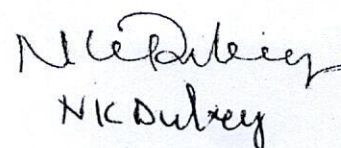 NKDubey
NKDubey